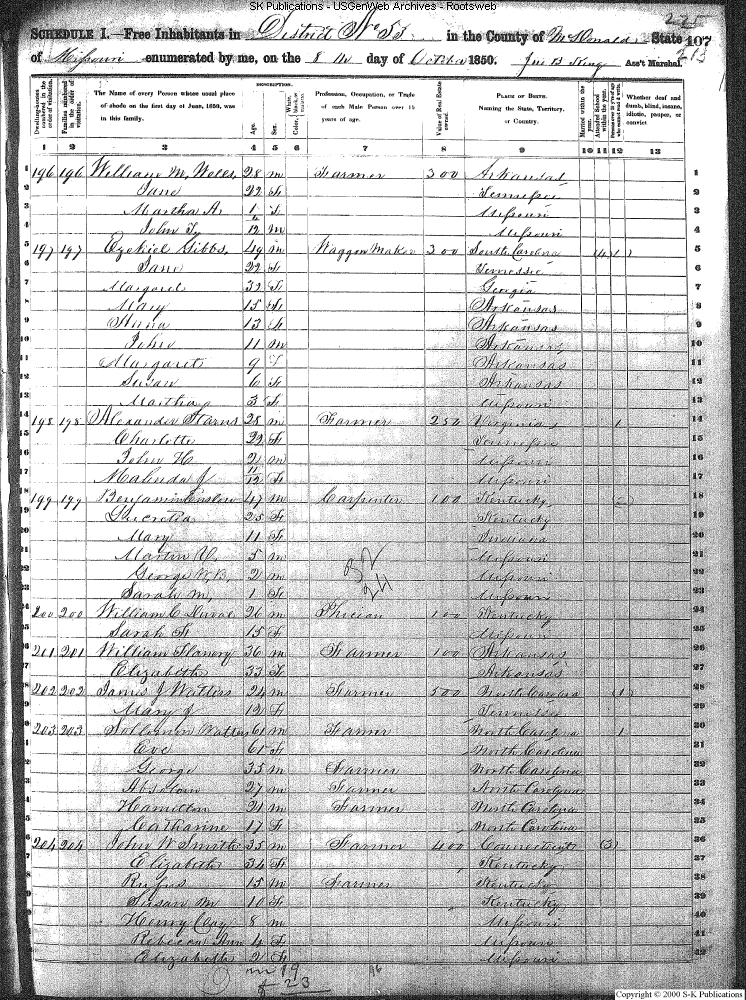 SK Publications - USGenWeb Archives - Rootsweb
SCHEDULE I.—Free Inhabitants in District No 55 in the County of McDonald State 107
of Missouri enumerated by me, on the 8th day of October 1850. Jno B King Ass't Marshal.
Dwelling-houses numbered in the order of visitation.
Families numbered in the order of visitation.
The Name of every Person whose usual place of abode on the first day of June, 1850, was in this family.
DESCRIPTION.
Age.
Sex.
Color, White, black, or mulatto.
Profession, Occupation, or Trade of each Male Person over 15 years of age.
Value of Real Estate owned.
PLACE OF BIRTH. Naming the State, Territory, or Country.
Married within the year.
Attended School within the year.
Persons over 20 y'rs of age who cannot read & write.
Whether deaf and dumb, blind, insane, idiotic, pauper, or convict
1 2 3 4 5 6 7 8 9 10 11 12 13
1 196 196 William M. Wells 28 m Farmer 300 Arkansas 1
2 Jane 22 F Tennessee 2
3 Martha A. 1 F Missouri 3
4 John 12 m Missouri 4
5 197 197 Ezekiel Gibbs 49 m Waggon Maker 300 South Carolina (4) 1) 5
6 Jane 22 F Tennessee 6
7 Margaret 32 F Georgia 7
8 Mary 15 F Arkansas 8
9 Anna 13 F Arkansas 9
10 John 11 m Arkansas 10
11 Margaret 9 F Arkansas 11
12 Susan 6 F Arkansas 12
13 Martha 3 F Missouri 13
14 198 198 Alexander Starns 28 m Farmer 250 Virginia 1 14
15 Charlotte 22 F Tennessee 15
16 John H 2 m Missouri 16
17 Malinda J 11/12 F Missouri 17
18 199 199 Benjamin 47 m Carpenter 100 Kentucky 18
19 Lucretia 25 F Kentucky 19
20 Mary 11 F Indiana 20
21 Martin V. 5 m Missouri 21
22 George W.B. 2 m Missouri 22
23 Sarah M. 1 F Missouri 23
24 200 200 William C Duval 26 m 100 Kentucky 24
25 Sarah F 15 F Missouri 25
26 201 201 William Flanory 36 m Farmer 100 Arkansas 26
27 Elizabeth 33 F Arkansas 27
28 202 202 James J Watters 24 m Farmer 500 North Carolina (1) 28
29 Mary J 19 F Tennessee 29
30 203 203 Sollomon Watters 61 m Farmer North Carolina 1 30
31 Eve 61 F North Carolina 31
32 George 35 m Farmer North Carolina 32
33 Absolom 27 m Farmer North Carolina 33
34 Hamilton 21 m Farmer North Carolina 34
35 Catharine 17 F North Carolina 35
36 204 204 John W Smith 35 m Farmer 400 Connecticut (3) 36
37 Elizabeth 34 F Kentucky 37
38 Rufus 15 m Farmer Kentucky 38
39 Susan M 10 F Kentucky 39
40 Henry Clay 8 m Missouri 40
41 Rebecca Ann 4 F Missouri 41
42 Elizabeth 2 F Missouri 42
m 19
f 23
Copyright © 2000 S-K Publications